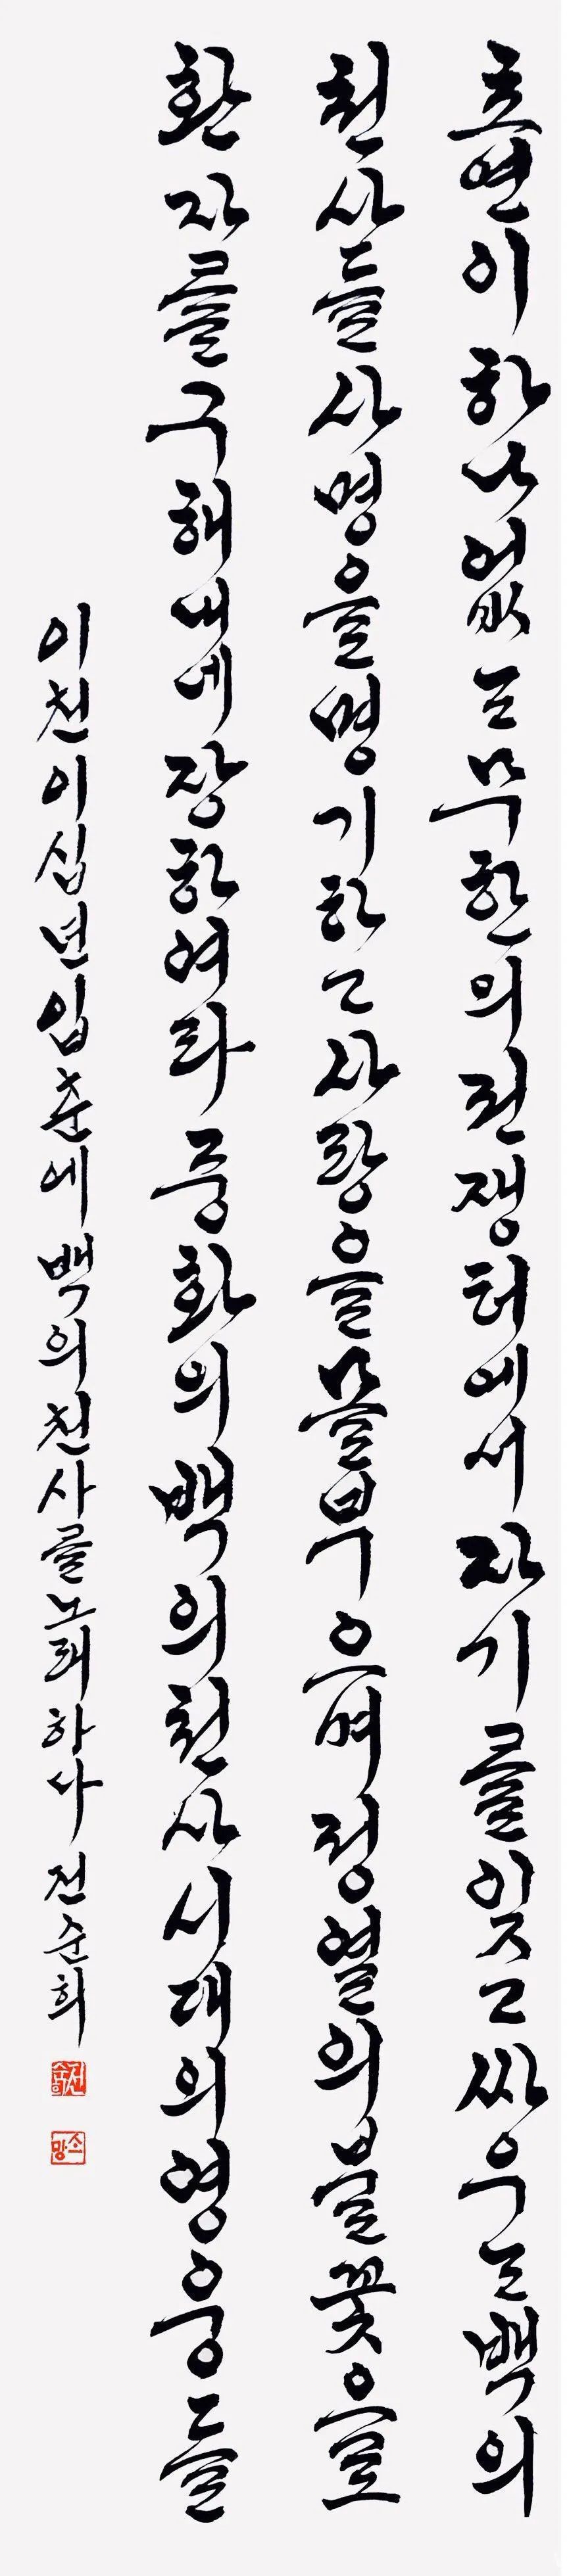 초연이하나없는무한의전쟁터에서자기를잊고싸우는백의
천사들사명을명기하고사랑을물부으며정열의불꽃으로
환자를구해내네장하여라중화의백의천사시대의영웅들
이천이십년입춘에백의천사를노래하다 전순희